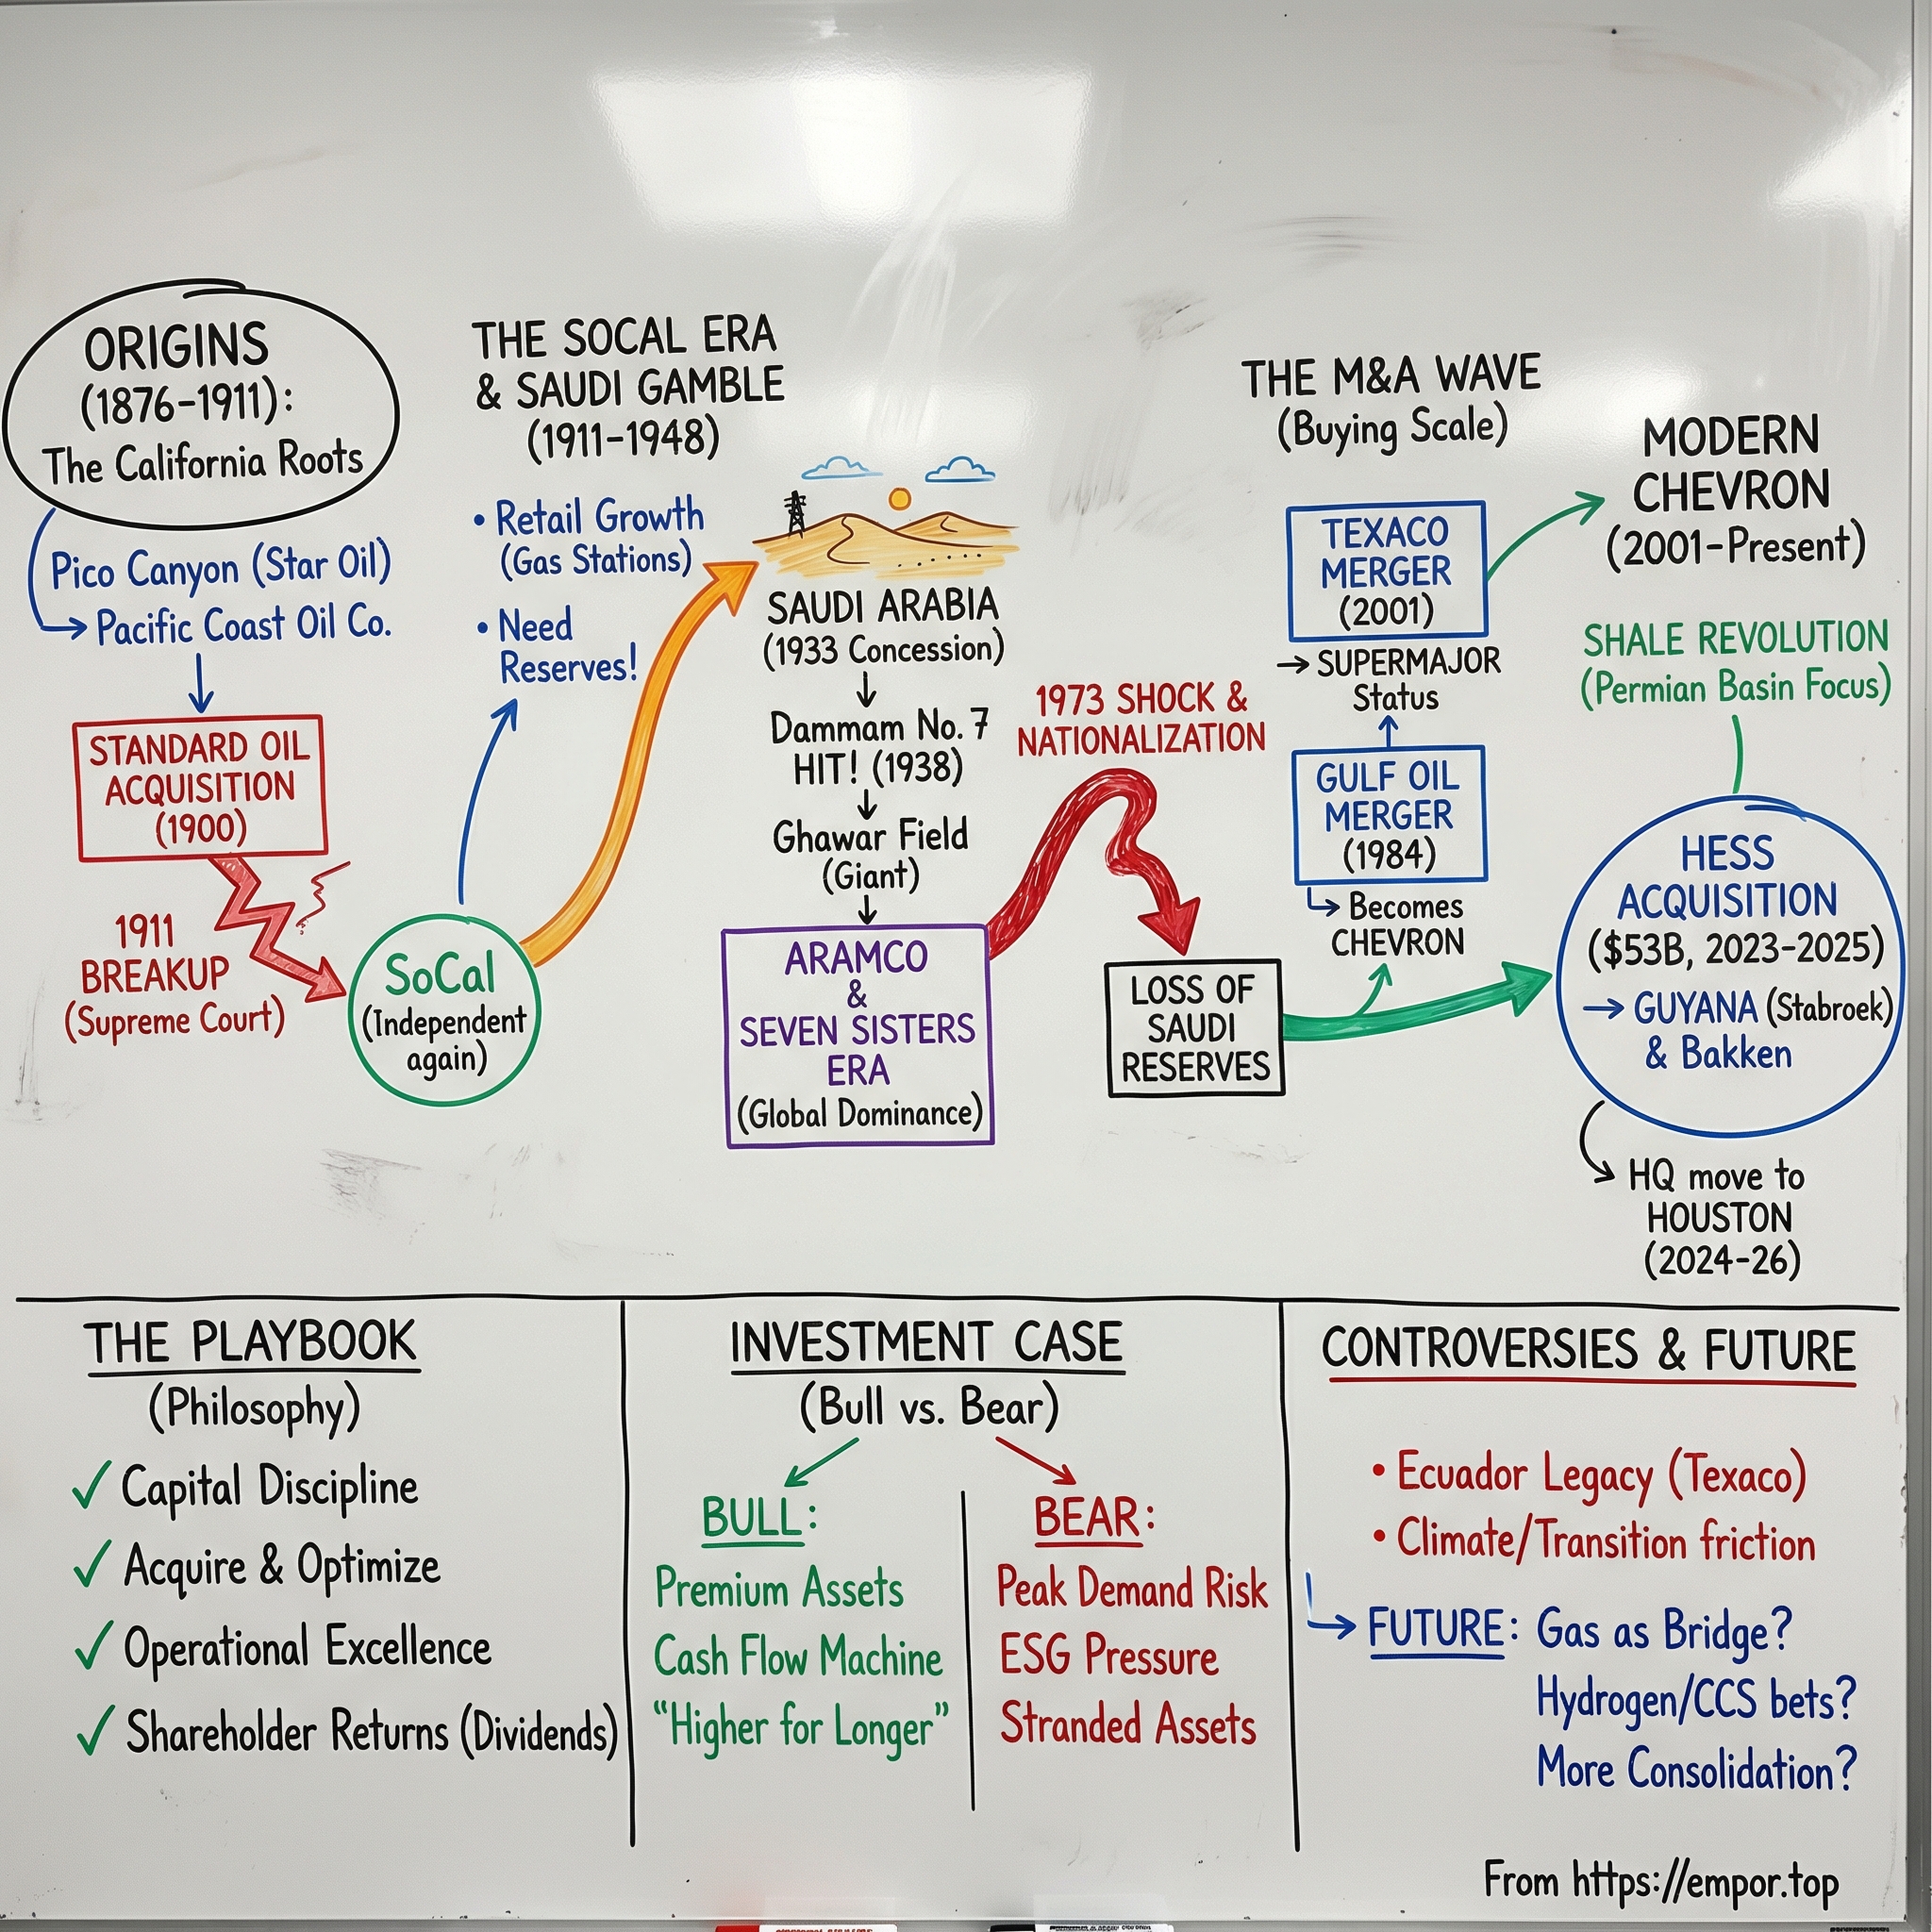 ORIGINS
(1876-1911):
The California Roots
Pico Canyon (Star Oil)
→ Pacific Coast Oil Co.
STANDARD OIL
ACQUISITION
(1900)
1911
BREAKUP
(Supreme Court)
SoCal
(Independent
again)
THE SOCAL ERA
& SAUDI GAMBLE
(1911-1948)
• Retail Growth
(Gas Stations)
• Need
Reserves!
SAUDI ARABIA
(1933 Concession)
Dammam No. 7
HIT! (1938)
Ghawar Field
(Giant)
ARAMCO
&
SEVEN SISTERS
ERA
(Global Dominance)
1973 SHOCK &
NATIONALIZATION
LOSS OF
SAUDI
RESERVES
THE M&A WAVE
(Buying Scale)
TEXACO
MERGER
(2001)
→ SUPERMAJOR
Status
GULF OIL
MERGER
(1984)
↳ Becomes
CHEVRON
MODERN
CHEVRON
(2001-Present)
SHALE REVOLUTION
(Permian Basin Focus)
HESS
ACQUISITION
($53B, 2023-2025)
→ GUYANA (Stabroek)
& Bakken
HQ move to
HOUSTON
(2024-26)
THE PLAYBOOK
(Philosophy)
✓ Capital Discipline
✓ Acquire & Optimize
✓ Operational Excellence
✓ Shareholder Returns (Dividends)
INVESTMENT CASE
(Bull vs. Bear)
BULL:
Premium Assets
Cash Flow Machine
"Higher for Longer"
BEAR:
Peak Demand Risk
ESG Pressure
Stranded Assets
CONTROVERSIES & FUTURE
• Ecuador Legacy (Texaco)
• Climate/Transition friction
↳ FUTURE: Gas as Bridge?
Hydrogen/CCS bets?
More Consolidation?
From https://empor.top